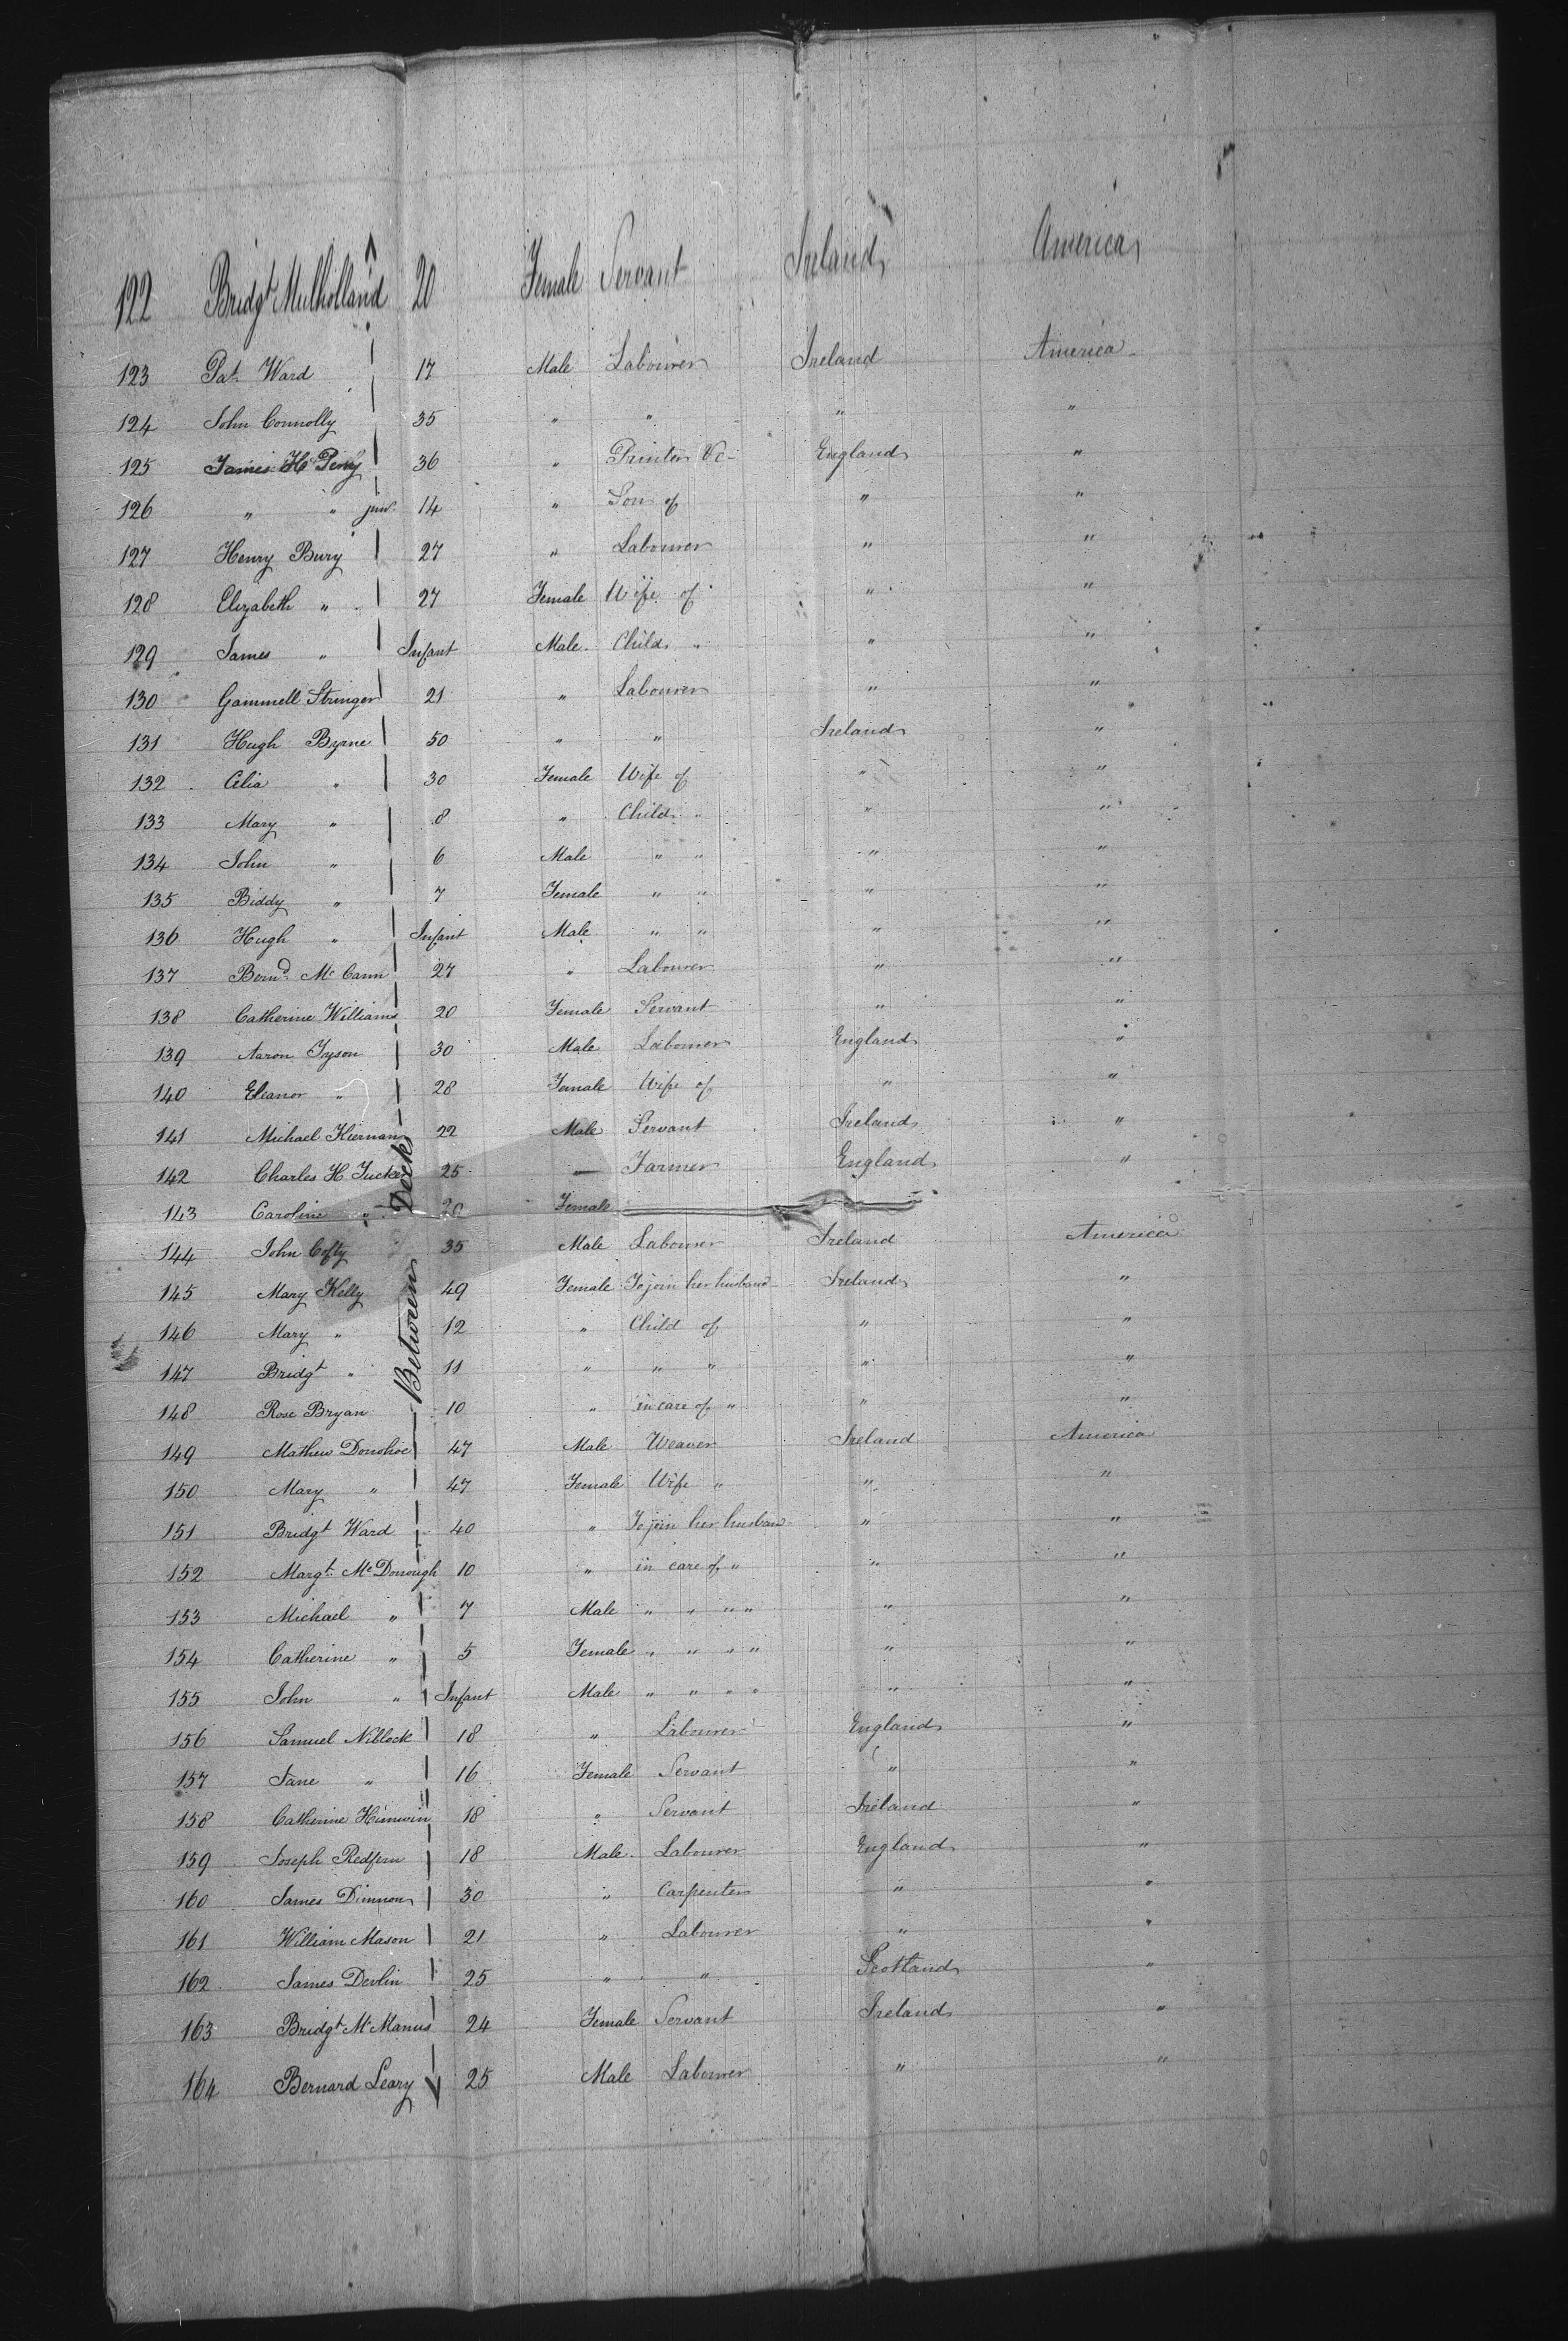 122 Bridgt Mulholland 20 Female Servant Ireland America
123 Pat Ward 17 Male Labourer Ireland America
124 John Connolly 35 " " " "
125 James H Perry 36 " Printer &c England "
126 " " junr 14 " Son of " "
127 Henry Bury 27 " Labourer " "
128 Elizabeth " 27 Female Wife of " "
129 James " Infant Male Child " " "
130 Gammell Stringer 21 " Labourer " "
131 Hugh Byrne 50 " " Ireland "
132 Celia " 30 Female Wife of " "
133 Mary " 8 " Child " " "
134 John " 6 Male " " " "
135 Biddy " 7 Female " " " "
136 Hugh " Infant Male " " " "
137 Bernd Mc Cann 27 " Labourer " "
138 Catherine Williams 20 Female Servant " "
139 Aaron Tyson 30 Male Labourer England "
140 Eleanor " 28 Female Wife of " "
141 Michael Kiernan 22 Male Servant Ireland "
142 Charles H Tucker 25 — Farmer England "
143 Caroline " 20 Female
144 John Cofty 35 Male Labourer Ireland America
145 Mary Kelly 49 Female To join her husband Ireland "
146 Mary " 12 " Child of " "
147 Bridgt " 11 " " " " "
148 Rose Bryan 10 " in care of " " "
149 Mathew Donohoe 47 Male Weaver Ireland America
150 Mary " 47 Female Wife " " "
151 Bridgt Ward 40 " To join her husband " "
152 Margt Mc Donough 10 " in care of " " "
153 Michael " 7 Male " " " " " "
154 Catherine " 5 Female " " " " " "
155 John " Infant Male " " " " " "
156 Samuel Niblock 18 " Labourer England "
157 Jane " 16 Female Servant " "
158 Catherine 18 " Servant Ireland "
159 Joseph Redfern 18 Male Labourer England "
160 James Dimnon 30 " Carpenter " "
161 William Mason 21 " Labourer " "
162 James Devlin 25 " " Scotland "
163 Bridgt Mc Manus 24 Female Servant Ireland "
164 Bernard Leary 25 Male Labourer " "
Between Decks